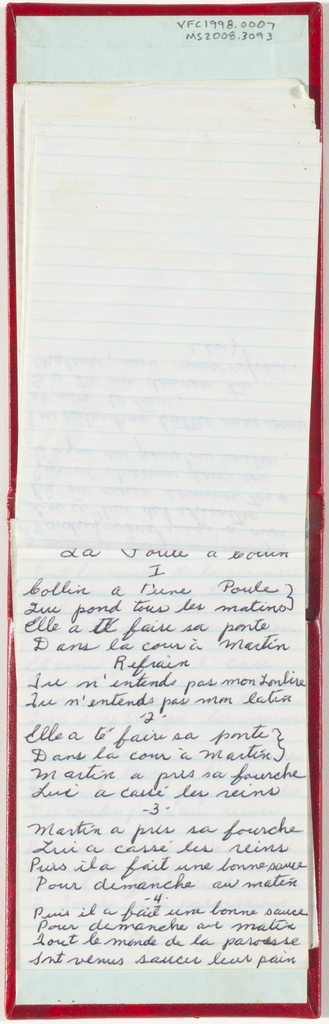 VFC1998.0007
MS2008.3093
La Poule a Colin
I
Collin a t'une Poule }
Qui pond tous les matins }
Elle a té faire sa ponte
Dans la cour à Martin
Refrain
Tu n'entends pas mon
Tu n'entends pas mon latin
-2-
Elle a té faire sa ponte }
Dans la cour a Martin }
Martin a pris sa fourche
Lui a cassé les reins
-3-
Martin a pris sa fourche
Lui a cassé les reins
Puis il a fait une bonne sauce
Pour demanche au matin
-4-
Puis il a fait une bonne sauce
Pour demanche au matin
Tout le monde de la paroisse
Sont venus saucer leur pain